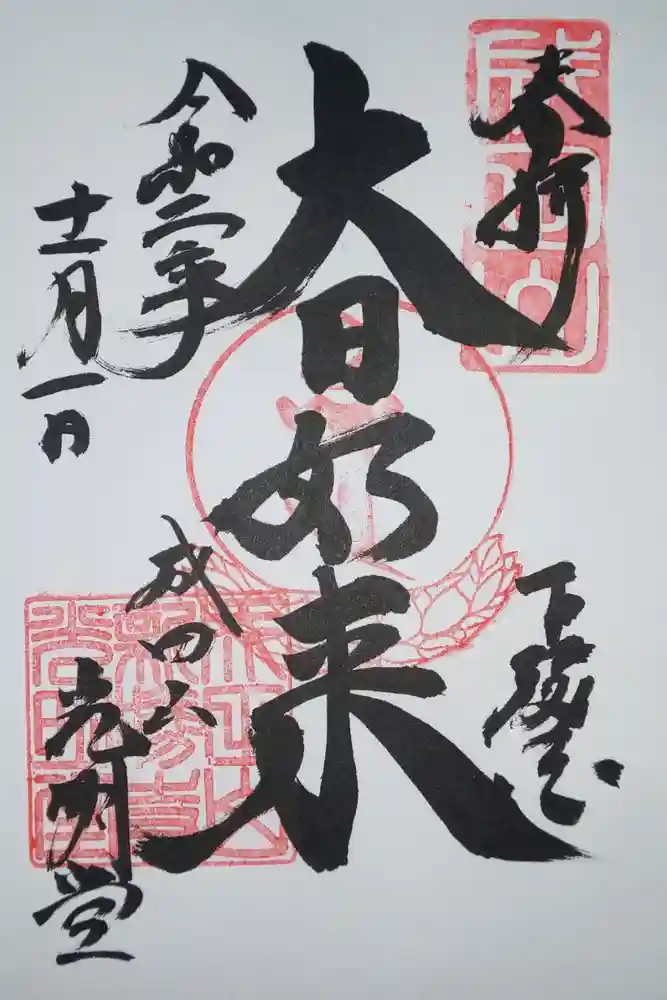 成田山
奉拝
大日如来
令和二年
十二月一日
成田山
光明堂